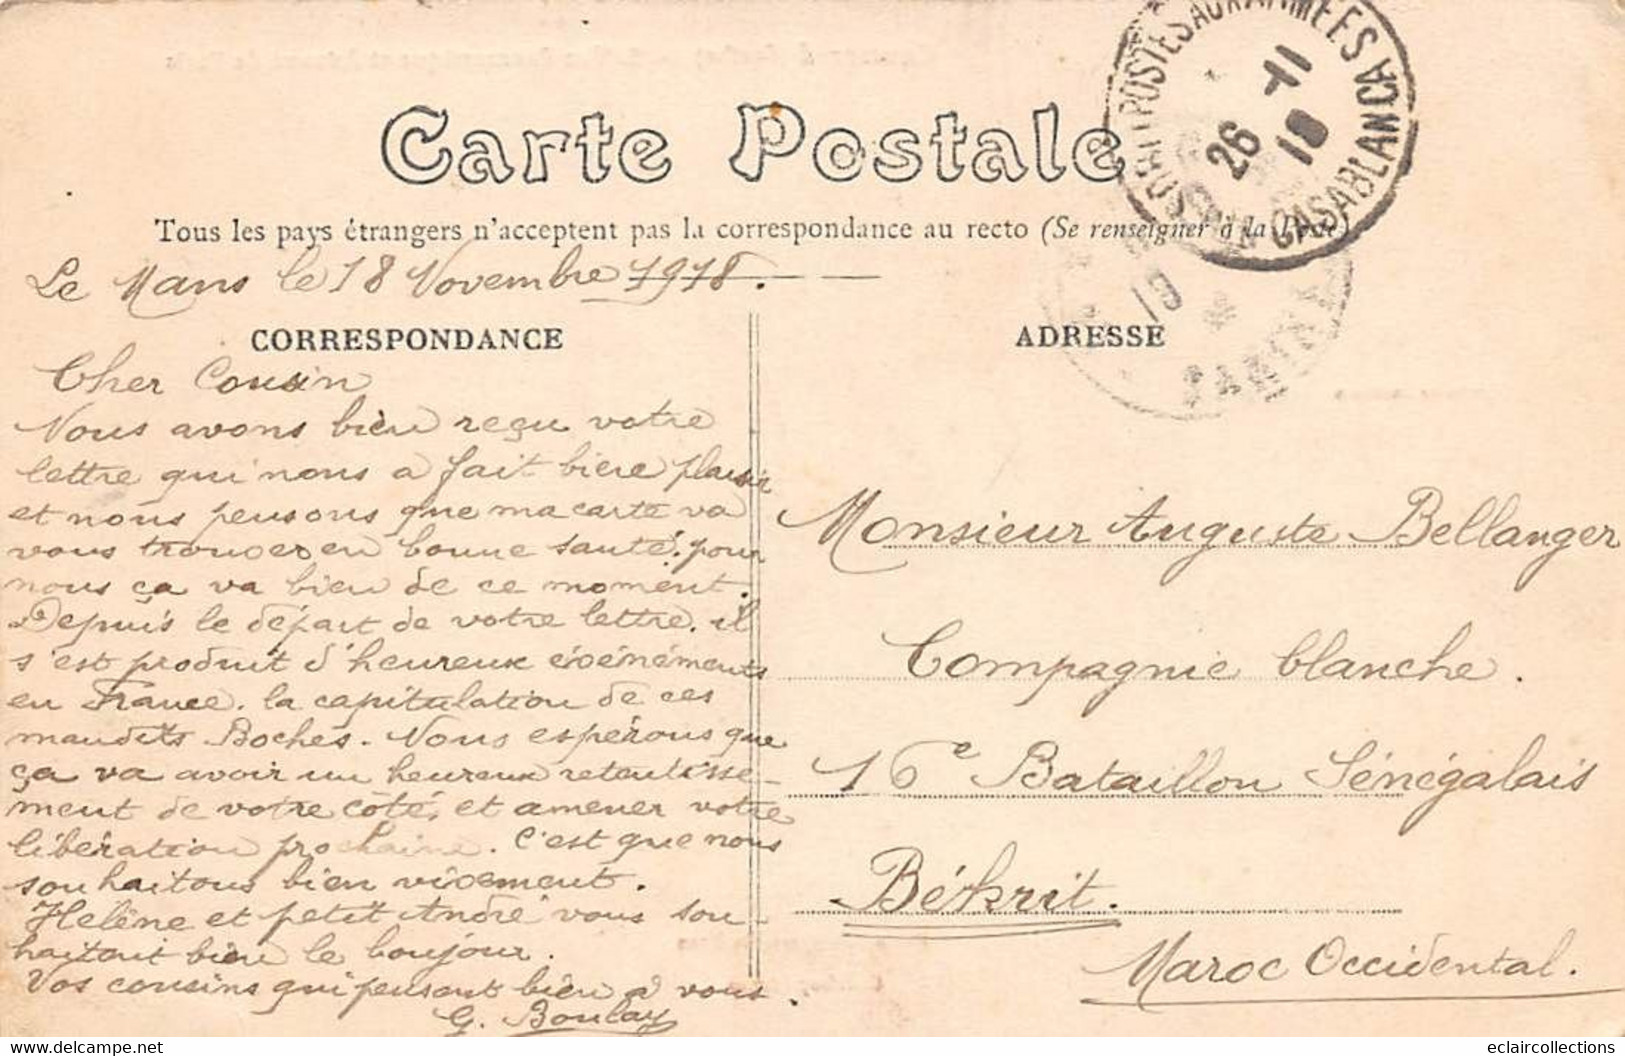 Carte Postale
Tous les pays étrangers n'acceptent pas la correspondance au recto (Se renseigner à la Poste)
POSTES AUX ARMEES CASABLANCA
26 -11 18
Le Mans le 18 Novembre 1918.
CORRESPONDANCE
ADRESSE
Cher Cousin
Nous avons bien reçu votre
lettre qui nous a fait bien plaisir
et nous pensons que ma carte va
vous trouver en bonne santé. pour
nous ça va bien de ce moment.
Depuis le départ de votre lettre. il
s'est produit d'heureux événements
en France. la capitulation de ces
maudits Boches. Nous espérons que
ça va avoir un heureux retentisse-
ment de votre côté, et amener votre
libération prochaine. C'est que nous
souhaitons bien vivement.
Hélène et petit André vous sou-
haitait bien le bonjour.
Vos cousins qui pensent bien à vous.
G. Boulay
Monsieur Auguste Bellanger
Compagnie blanche.
16e Bataillon Sénégalais
Békrit.
Maroc Occidental.
eclaircollections